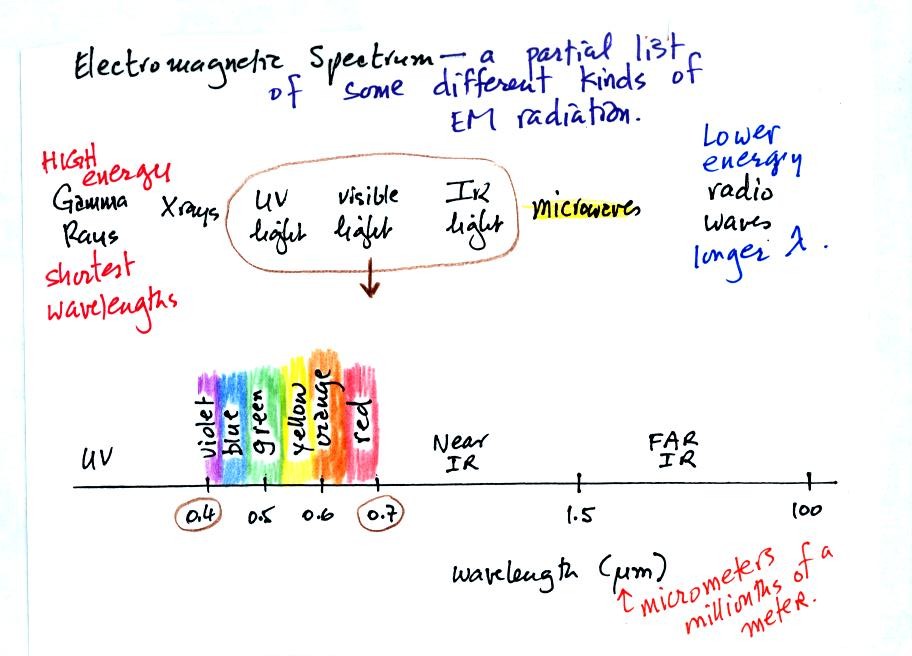 Electromagnetic Spectrum — a partial list
of some different kinds of
EM radiation.
HIGH
energy
Gamma
Rays
shortest
wavelengths
Xrays
UV
light
visible
light
IR
light
microwaves
Lower
energy
radio
waves
longer λ.
UV
violet
blue
green
yellow
orange
red
Near
IR
FAR
IR
0.4 0.5 0.6 0.7 1.5 100
wavelength (μm)
↑ micrometers
millionths of a
meter.